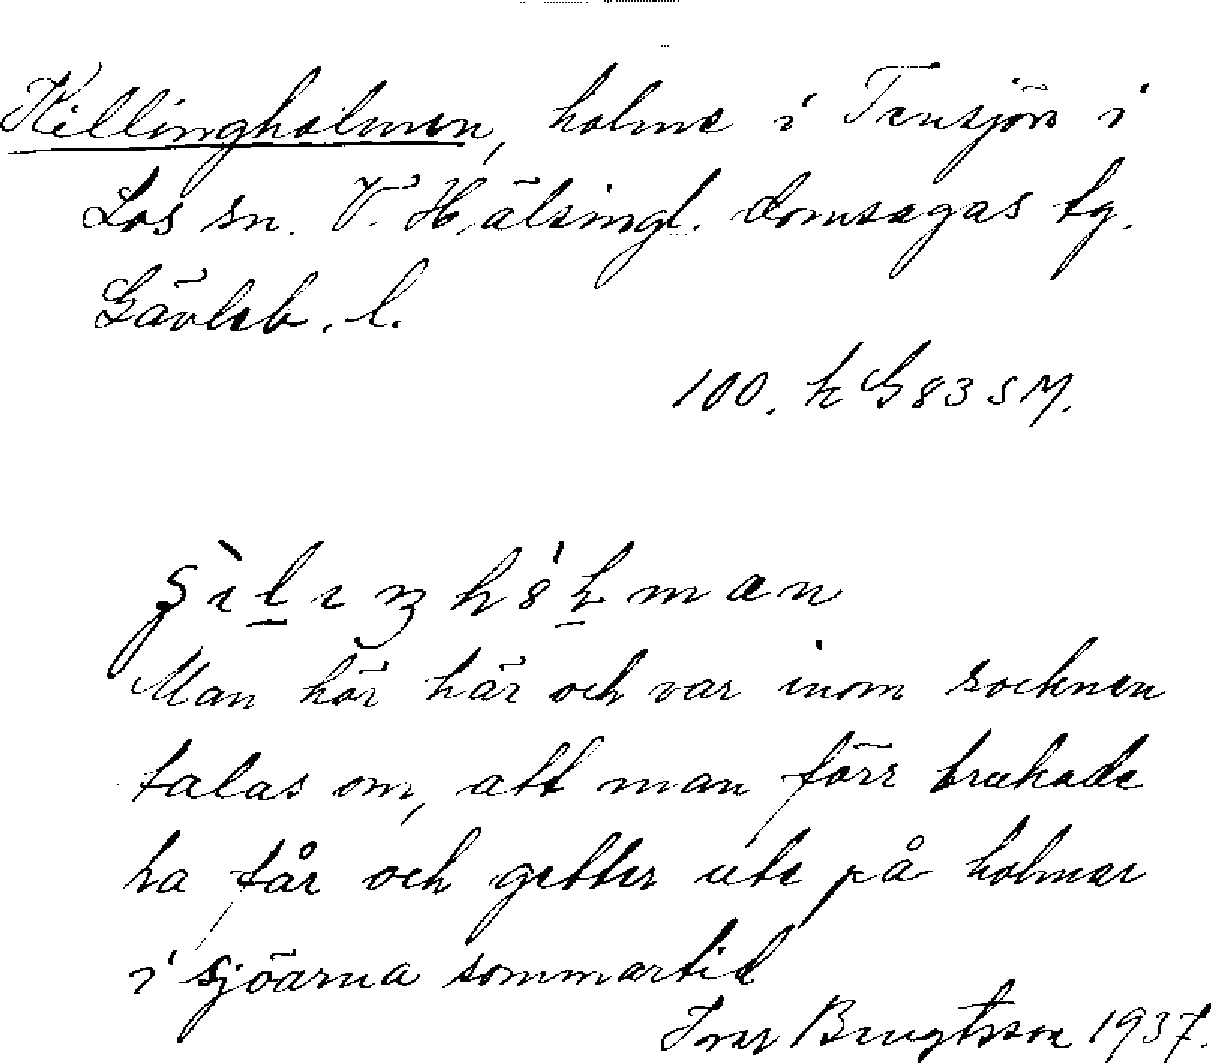 Killingholmen, holme i Tensjön i
Los sn. V. Hälsingl. domsagas tg.
Gävleb. l.
100. k G83SM.
man
Man hör här och var inom socknen
talas om, att man förr brukade
ha får och getter ute på holmar
i sjöarna sommartid
Bengtsson 1937.